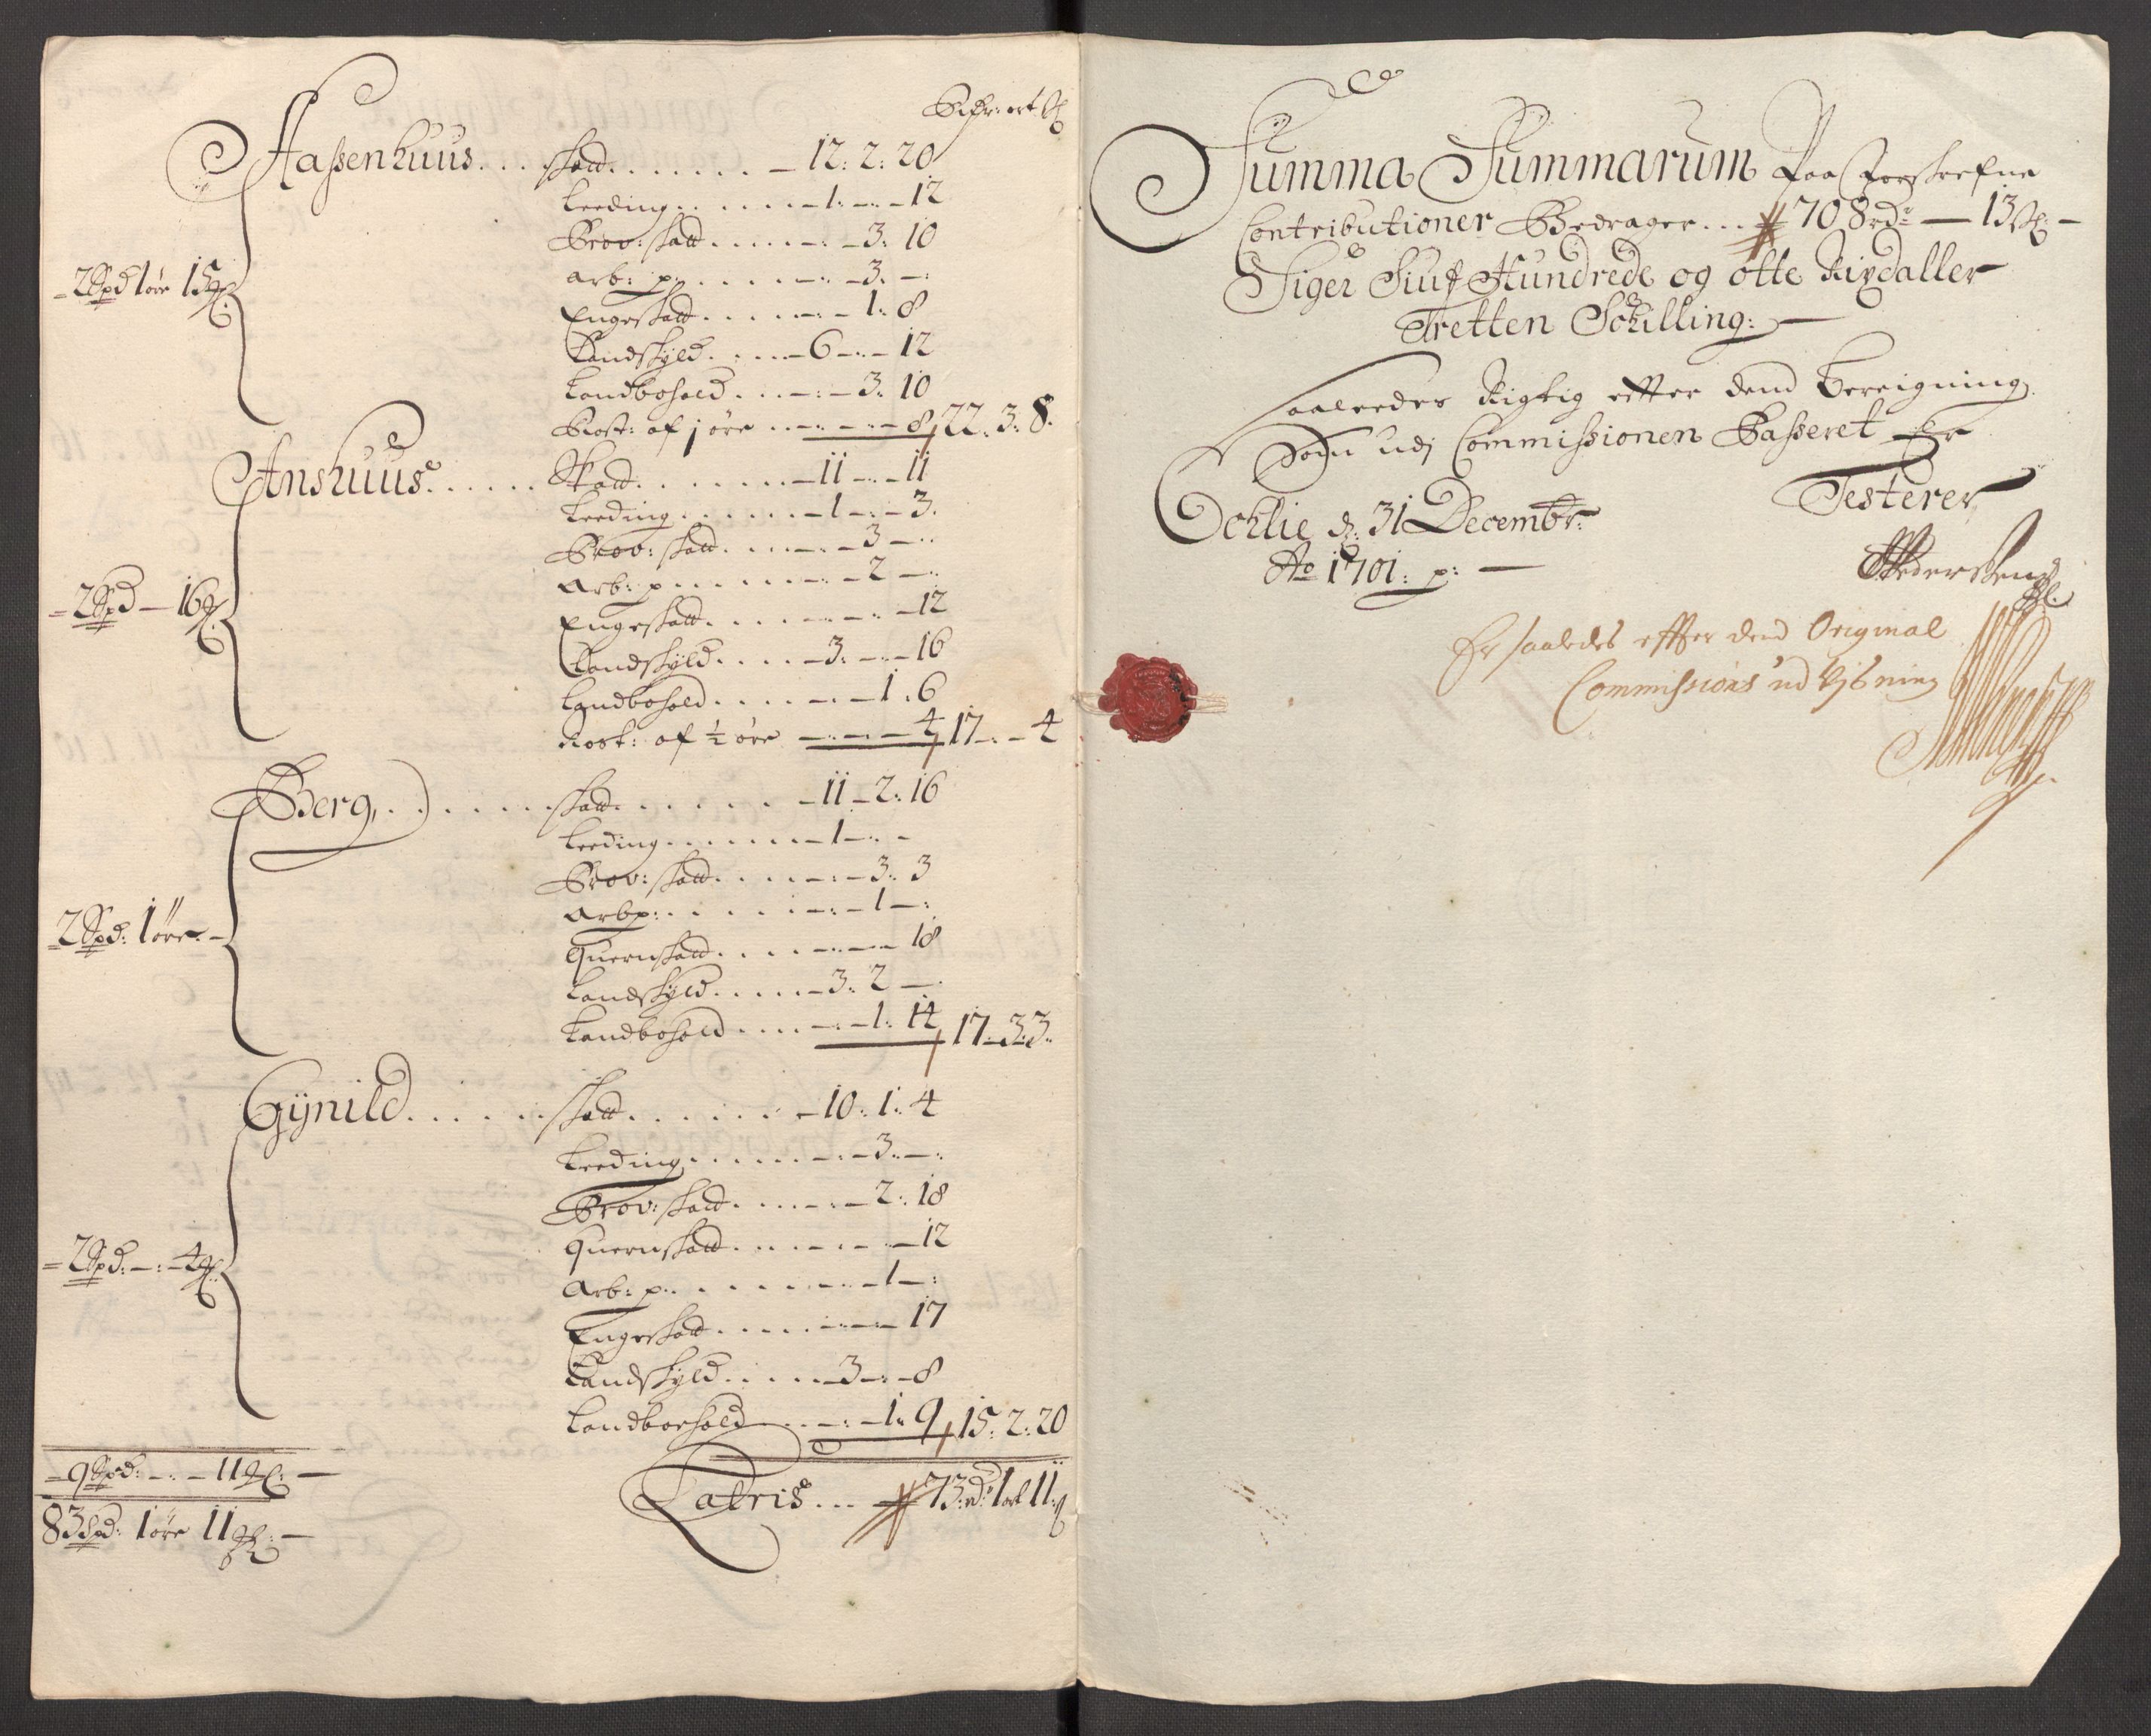 Rixdr: ort ß
Hassenhuus . . . skatt . . . . . . . – 12: 2: 20
Leeding . . . . . . – 1: – . – 12
Prov: skatt . . . . . – : – 3: 10
arb: p: . . . . . . – : – 3: – :
Engeskatt . . . . . – : – 1: 8
Landskyld . . . . – 6 – : – 12
Landbohold . . . – : – 3: 10
Kost: af j øre . . – : – : – 8 22. 3: 8.
– 2 Spd 1 øre 15 mkl
Anshuus . . . . . . Skatt . . . . . . . – 11 – . – 11
Leeding . . . . . . – 1 – : – 3.
Prov: skatt . . . . – : – 3 – :
Arb: p . . . . . . – : – 2 – :
Engeskatt . . . . . . – : – 12
Landskyld . . . . – 3: – . – 16
Landbohold . . . . – : – 1 : 6
Kost: af ½ øre – : – : – 4 17 – : – 4
– 2 Spd – 16 mkl
Berg . . . . . . . skatt . . . . . . – 11 – 2: 16
Leeding . . . . . . . – 1 – : –
Prov: skatt . . . . . – : – 3. 3
Arbp: . . . . . . – : – 1 – :
Quernskatt . . . . – : – : – 18
Landskyld . . . . . – 3: 2 – :
Landbohold . . . . – : – 1: 14 17 – 3: 3.
2 Spd: 1 øre –
Gÿnild . . . . . . skatt . . . . . . – 10: 1: 4
Leeding . . . . . . . – : – 3: – :
Prov: skatt . . . . – : – 2: 18
quernskatt . . . . . – : – 12
Arb: p . . . . . . . – : – 1 – :
Engeskatt . . . . . – : – 17
Landskyld . . . . . – 3 – : – 8
Landboehold . . . – : – 1: 9 15: 2: 20
– 2 Spd: – : – 4 mkl
– 9 Spd: – : – 11 mkl: –
Latris . . . 73 rd: 1 ort 11 ß
83 Spd: 1 øre 11 mkl: –
Summa Summarum Paa forskrefne
Contributioner Bedrager . . . 708 rdr – 13 ß: –
Siger Siuf Hundrede og otte Rixdaller
Tretten Schilling: –
Saaledes Rigtig efter dend bereigning
Som udj Commissionen Passeret Er
Testerer
Oehlie d: 31 Decembr:
Ao 1701: p: –
Er saaledes effter dend Original
Commissions udvjsning